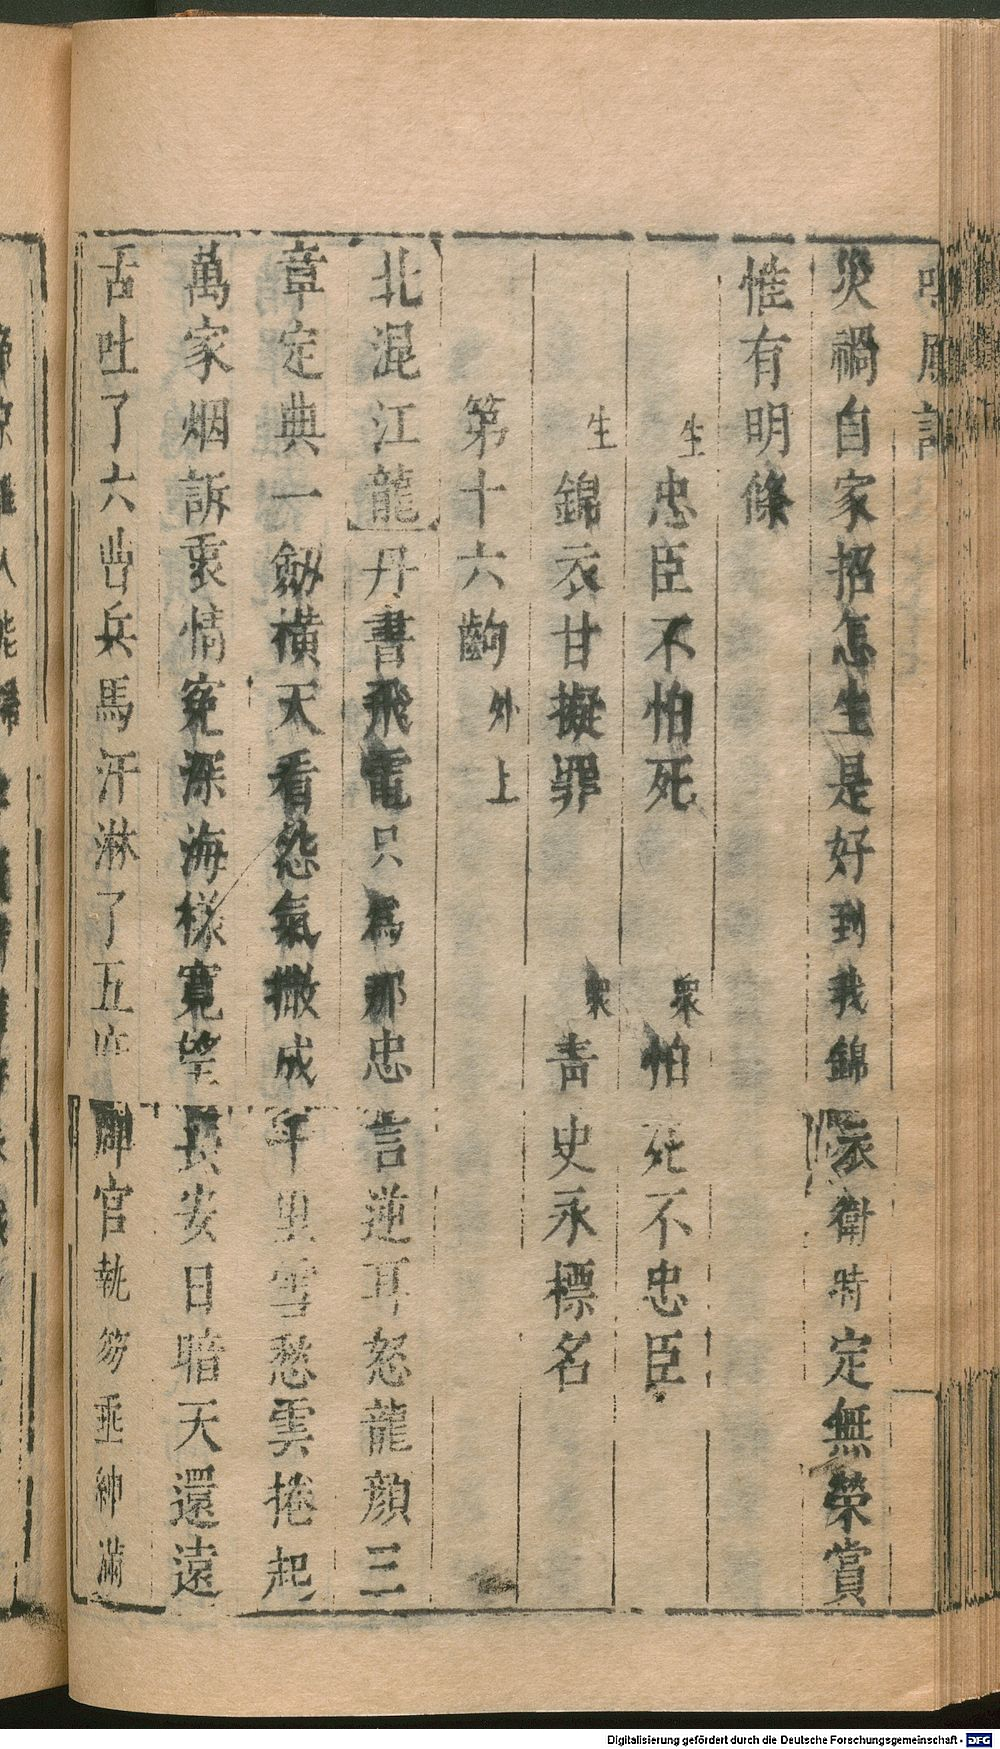 災禍自家招怎生是好到我錦衣衛時定無榮賞
惟有明條
生 忠臣不怕死 衆 怕死不忠臣
生 錦衣甘擬罪 衆 青史永標名
第十六齣 外上
北混江龍 丹書飛電只爲那忠言逆耳怒龍顔三
章定典一劒橫天看怨氣撒成千里雪愁雲捲起
萬家烟訴衷情寃深海様寛望長安日暗天還遠
舌吐了六 兵馬汗淋了五 官執笏垂紳滿
Digitalisierung gefördert durch die Deutsche Forschungsgemeinschaft - DFG